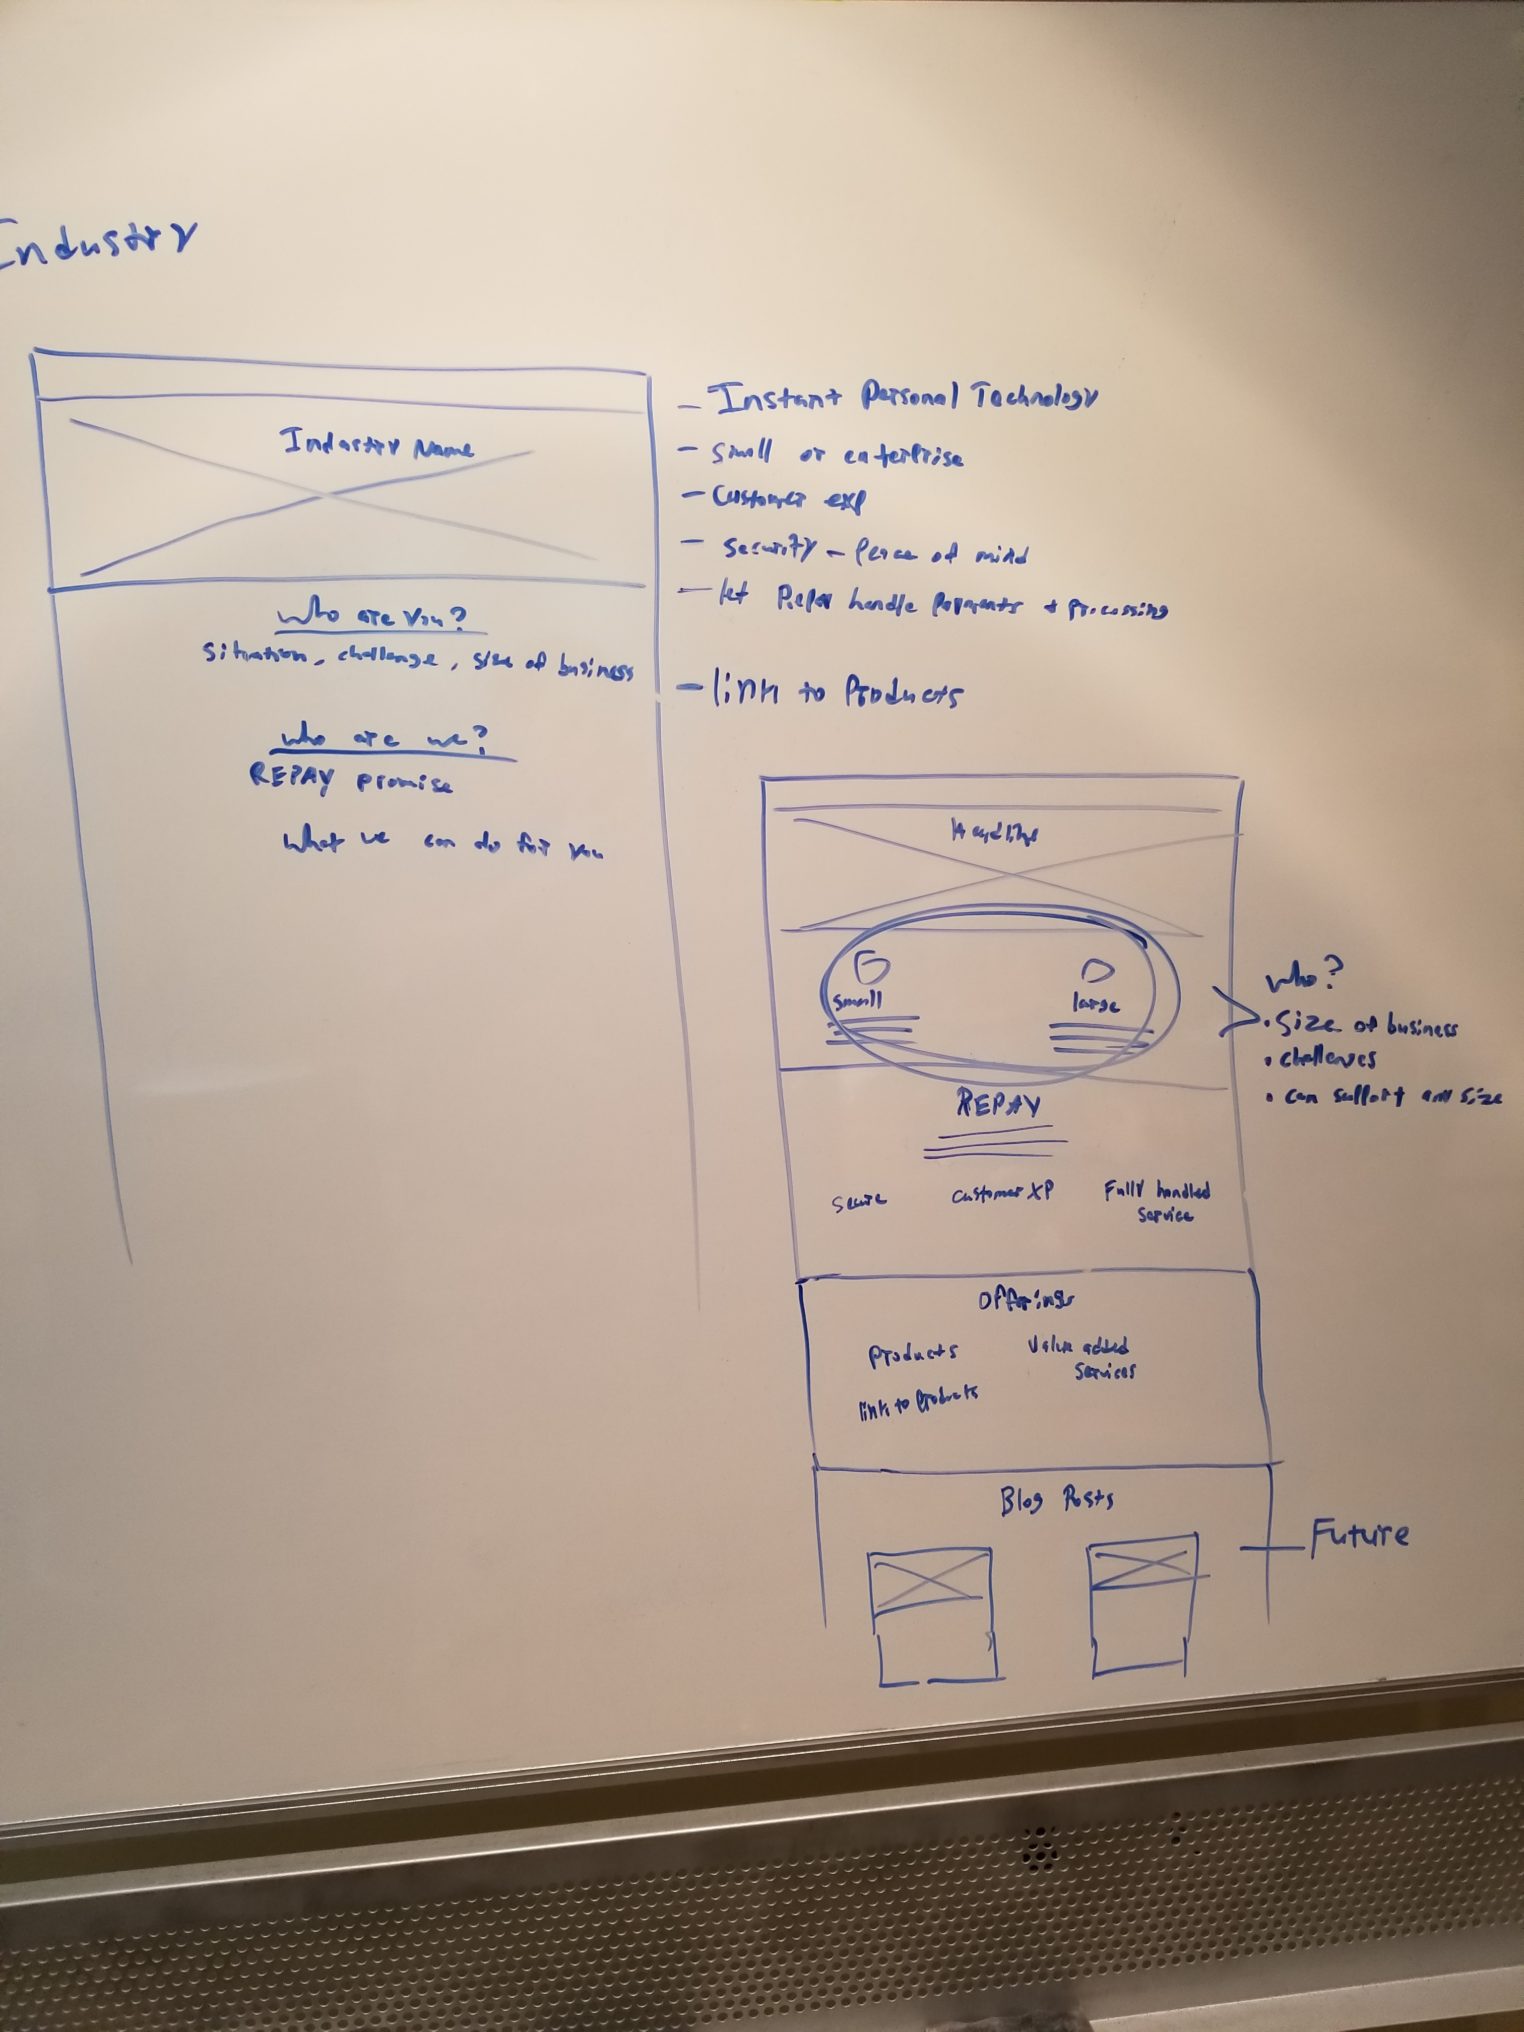 Industry
Industry Name
who are you?
situation, challenge, size of business
who are we?
REPAY promise
what we can do for you
- Instant Personal Technology
- small or enterprise
- Customer exp
- security - peace of mind
- let Repay handle payments + processing
- link to Products
Headline
small
large
who?
• size of business
• challenges
• can support any size
REPAY
secure
customer XP
Fully handled
service
Offerings
products
value added
services
link to products
Blog Posts
Future